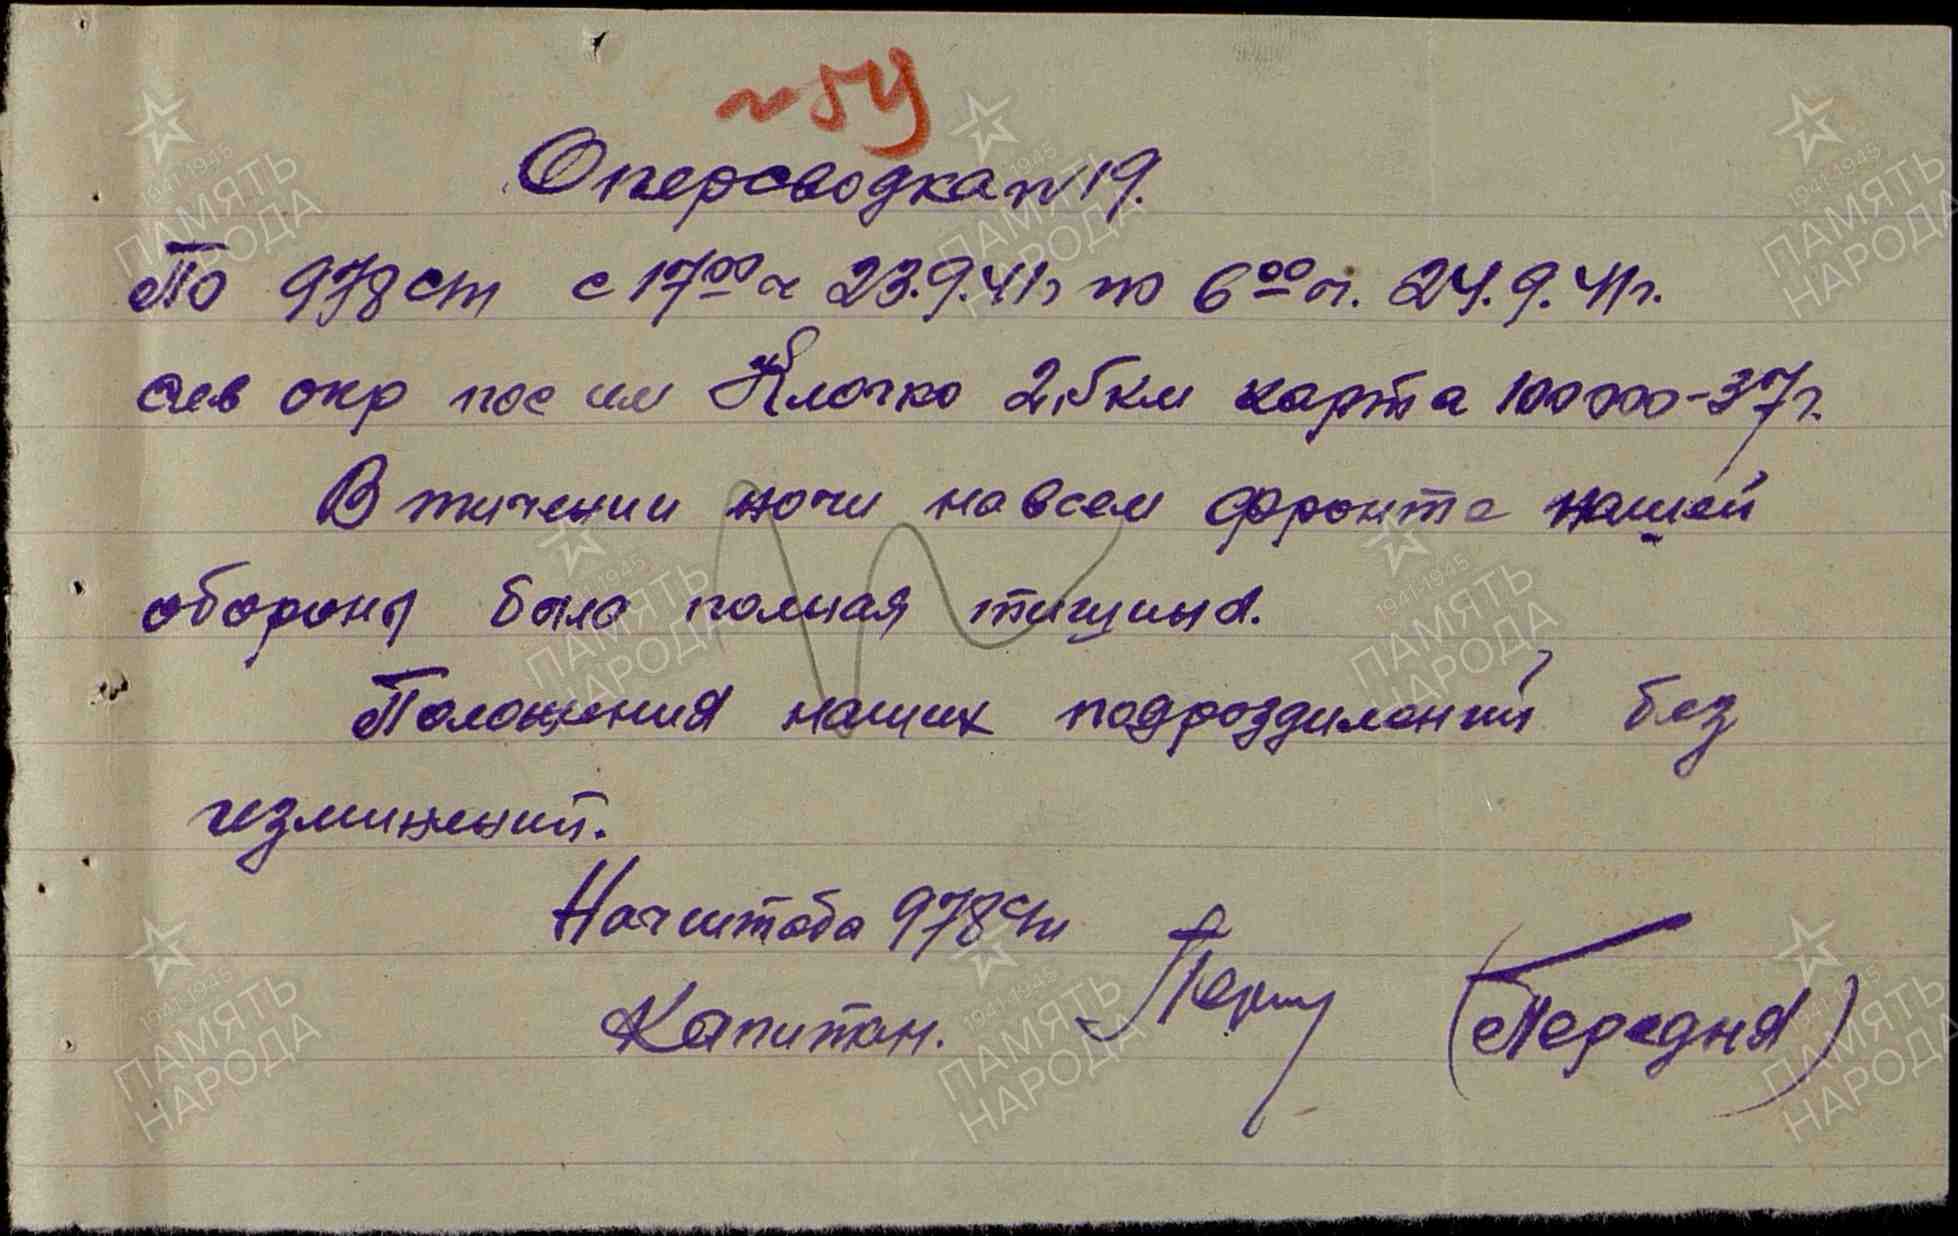 №59
Оперсводка №19.
По 978 сп с 17⁰⁰ ч 23.9.41г по 6⁰⁰ ч. 24.9.41г.
сев окр пос им Клочко 2,5км карта 100000-37г.
В течении ночи на всем фронте нашей
обороны была полная тишина.
Положения наших подрозделений без
изминений.
Начштаба 978 сп
Капитан. (Передня)
1941-1945
ПАМЯТЬ
НАРОДА